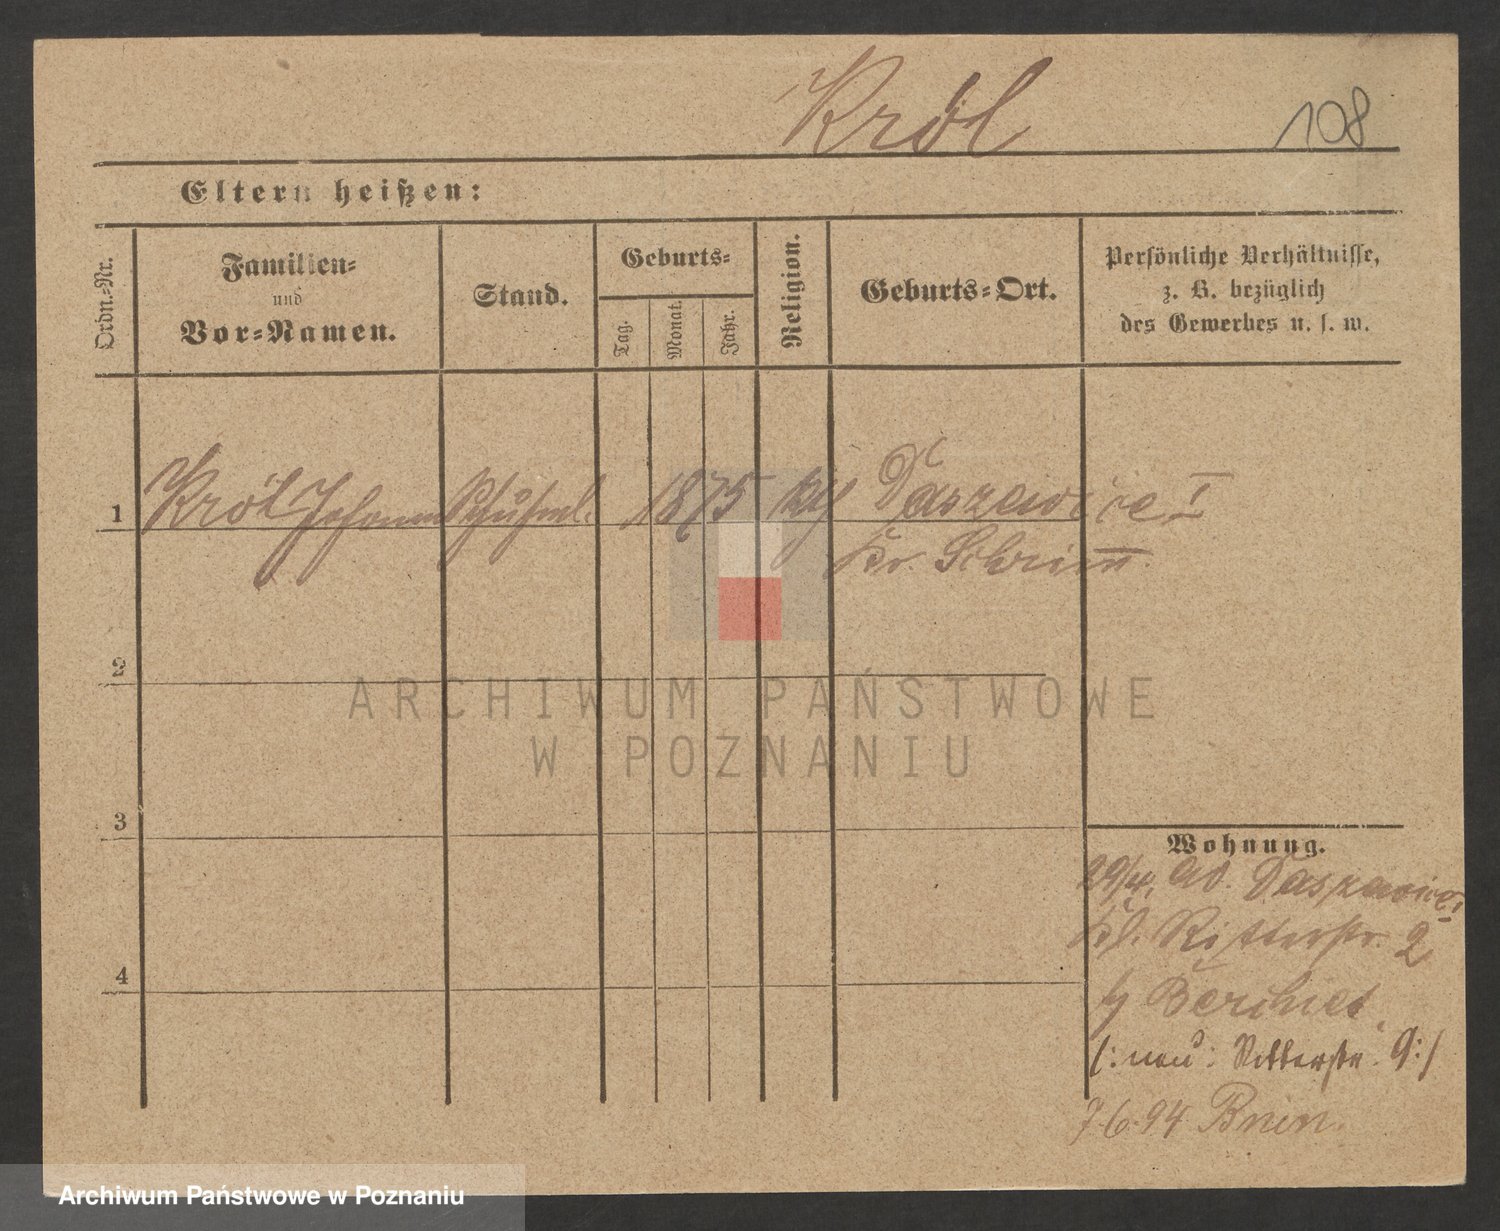 Król
108
Eltern heißen:
Ordn.-Nr.
Familien-
und
Vor-Namen.
Stand.
Geburts-
Tag.
Monat.
Jahr.
Religion.
Geburts-Ort.
Persönliche Verhältnisse,
z. B. bezüglich
des Gewerbes u. s. w.
1 Król Johann Schuhml. 1875 kth Daszewice I
Kr. Schrimm.
2
3
4
Wohnung.
29/4. 90. Daszewice I
Kl. Ritterstr. 2
b/
(: neu: Ritterstr. 9:)
7.6.94 Bnin.
ARCHIWUM PAŃSTWOWE
W POZNANIU
Archiwum Państwowe w Poznaniu